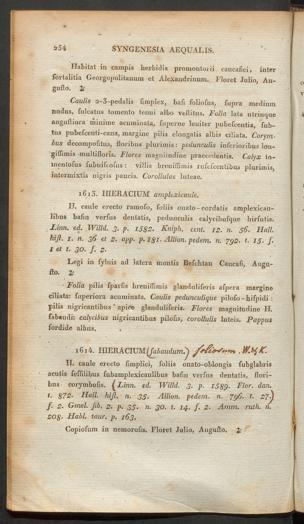 254 SYNGENESIA AEQUALIS.
Habitat in campis herbidis promontorii caucasici, inter
fortalitia Georgopolitanum et Alexandrinum. Floret Julio, Au-
gusto. ♃
Caulis 2-3-pedalis simplex, basi foliosus, supra medium
nudus, sulcatus tomento tenui albo vestitus. Folia lata utrinque
angustiora minime acuminata, superne leuiter pubescentia, sub-
tus pubescenti-cana, margine pilis elongatis albis ciliata. Corym-
bus decompositus, floribus plurimis: pedunculis inferioribus lon-
gissimis multifloris. Flores magnitudine praecedentis. Calyx to-
mentosus subuiscosus: villis breuissimis rufescentibus plurimis,
intermixtis nigris paucis. Corollulae luteae.
1613. HIERACIUM amplexicaule.
H. caule erecto ramoso, foliis ouato-cordatis amplexicau-
libus basin versus dentatis, pedunculis calycibusque hirsutis.
Linn. ed. Willd. 3. p. 1582. Kniph. cent. 12. n. 56. Hall.
hist. 1. n. 36 et 2. app. p. 181. Allion. pedem. n. 792. t. 15. f.
1 et t. 30. f. 2.
Legi in syluis ad latera montis Beschtau Caucasi, Augu-
sto. ♃
Folia pilis sparsis breuissimis glanduliferis aspera margine
ciliata: superiora acuminata. Caulis pedunculique piloso-hispidi:
pilis nigricantibus apice glanduliferis. Flores magnitudine H.
sabaudi: calycibus nigricantibus pilosis, corollulis luteis. Pappus
sordide albus.
1614. HIERACIUM (sabaudum.) foliosum. W. & K.
H. caule erecto simplici, foliis ouato-oblongis subglabris
acutis sessilibus subamplexicaulibus basin versus dentatis, flori-
bus corymbosis. (Linn. ed. Willd. 3. p. 1589. Flor. dan.
t. 872. Hall. hist. n. 35. Allion. pedem. n. 796. t. 27.)
f. 2. Gmel. sib. 2. p. 35. n. 30. t. 14. f. 2. Amm. ruth. n.
208. Habl. taur. p. 163.
Copiosum in nemoresis. Floret Julio, Augusto. ♃